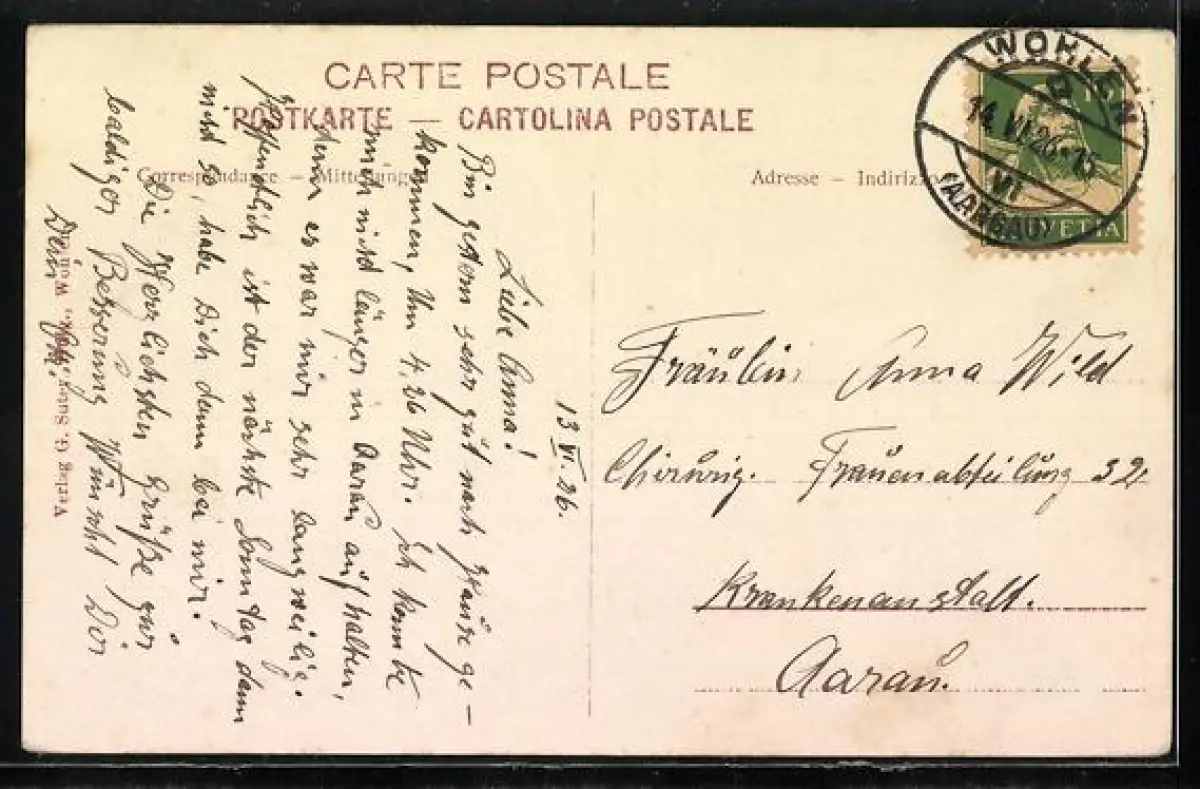 CARTE POSTALE
POSTKARTE — CARTOLINA POSTALE
Correspondance – Mitteilungen
Adresse – Indirizzo
WOHLEN
14.VI.26.-15
VI
(AARGAU)
HELVETIA
13 VI. 26.
Liebe Anna!
Bin gestern sehr gut nach Hause ge-
kommen, Um 4,26 Uhr. Ich konnte
mich nicht länger in Aarau aufhalten,
denn es war mir sehr langweilig.
Hoffentlich ist der nächste Sonntag dann
nicht so, habe Dich dann bei mir.
Die Herzlichsten Grüße zur
baldiger Besserung Wünscht Dir
Dein
Verlag G. Suter,
Fräulein Anna Wild
Chirurig. Frauenabteilung 32
Krankenanstalt.
Aarau.